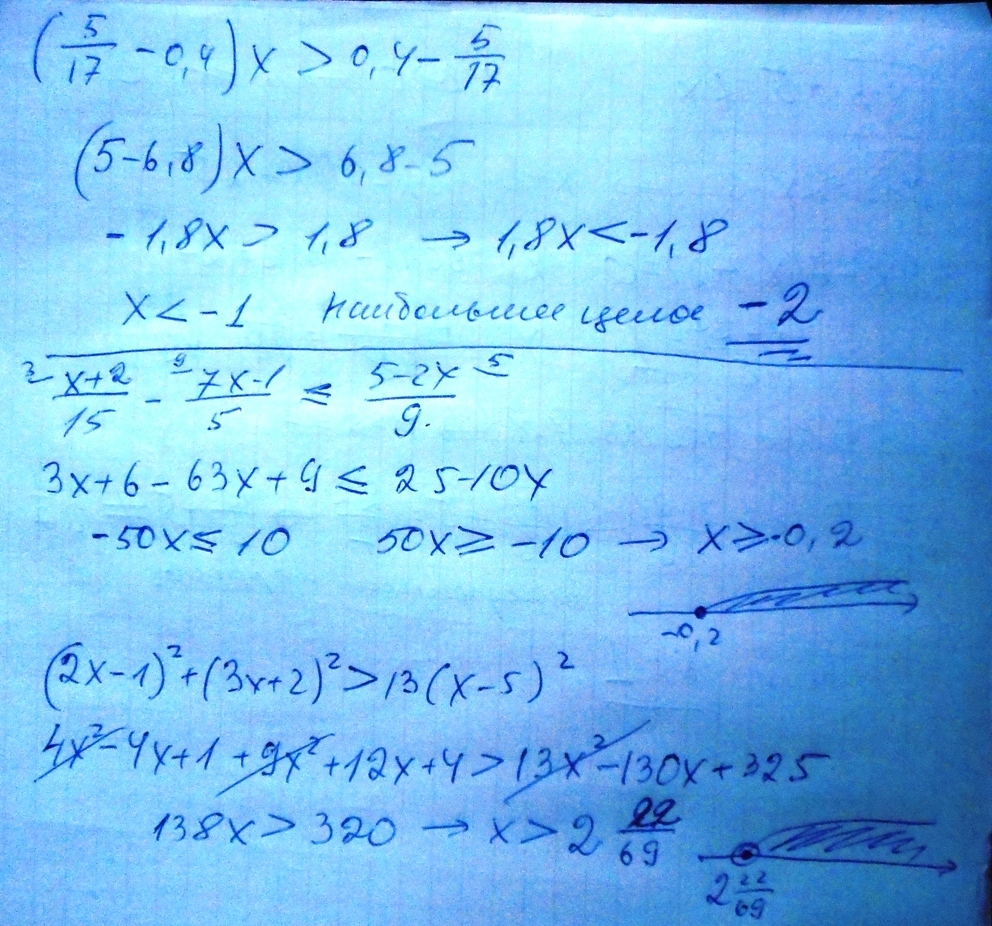 (5/17 - 0,4) x > 0,4 - 5/17
(5-6,8) x > 6,8-5
-1,8x > 1,8 → 1,8x < -1,8
x < -1 Наибольшее целое -2
3 x+2/15 - 9 7x-1/5 ≤ 5-2x/9. 5
3x+6 - 63x+9 ≤ 25-10x
-50x ≤ 10 50x ≥ -10 → x ≥ -0,2
-0,2
(2x-1)² + (3x+2)² > 13(x-5)²
4x² - 4x+1 + 9x² + 12x+4 > 13x² - 130x + 325
138x > 320 → x > 2 22/69
2 22/69